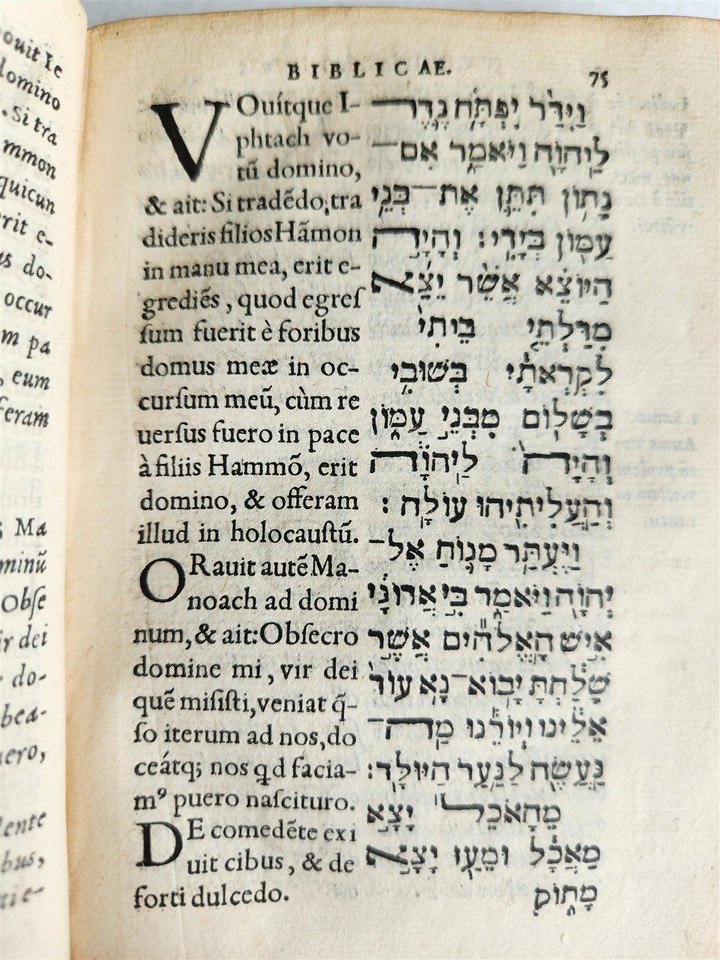 ouit Ie
domino
. Si tra
mmon
quicun
rit e-
us do-
occur
m pa
, eum
feram
Ma
minũ
Obſe
ir dei
do-
bea-
uero,
lente
ibus,
BIBLICAE.
75
VOuítque I-
phtach vo-
tũ domino,
& ait: Si tradẽdo,tra
dideris filios Hãmon
in manu mea, erit e-
grediẽs, quod egreſ
ſum fuerit è foribus
domus meæ in oc-
curſum meũ, cùm re
uerſus fuero in pace
à filiis Hammõ, erit
domino, & offeram
illud in holocauſtũ.
ORauit autẽ Ma-
noach ad domi
num, & ait: Obſecro
domine mi, vir dei
quẽ miſiſti, veniat q̃-
ſo iterum ad nos, do
ceátq; nos qd facia-
mꝰ puero naſcituro.
DE comedẽte exi
uit cibus, & de
forti dulcedo.
וַיִּדַּר יִפְתָּח נֶדֶר
לַיהוָה וַיֹּאמַר אִם־
נָתוֹן תִּתֵּן אֶת־בְּנֵי
עַמּוֹן בְּיָדִי׃ וְהָיָה
הַיּוֹצֵא אֲשֶׁר יֵצֵא
מִדַּלְתֵי בֵיתִי
לִקְרָאתִי בְּשׁוּבִי
בְשָׁלוֹם מִבְּנֵי עַמּוֹן
וְהָיָה לַיהוָה
וְהַעֲלִיתִיהוּ עוֹלָה׃
וַיֶּעְתַּר מָנוֹחַ אֶל־
יְהוָה וַיֹּאמַר בִּי אֲדוֹנָי
אִישׁ הָאֱלֹהִים אֲשֶׁר
שָׁלַחְתָּ יָבוֹא־נָא עוֹד
אֵלֵינוּ וְיוֹרֵנוּ מַה־
נַּעֲשֶׂה לַנַּעַר הַיּוּלָּד׃
מֵהָאֹכֵל יָצָא
מַאֲכָל וּמֵעַז יָצָא
מָתוֹק